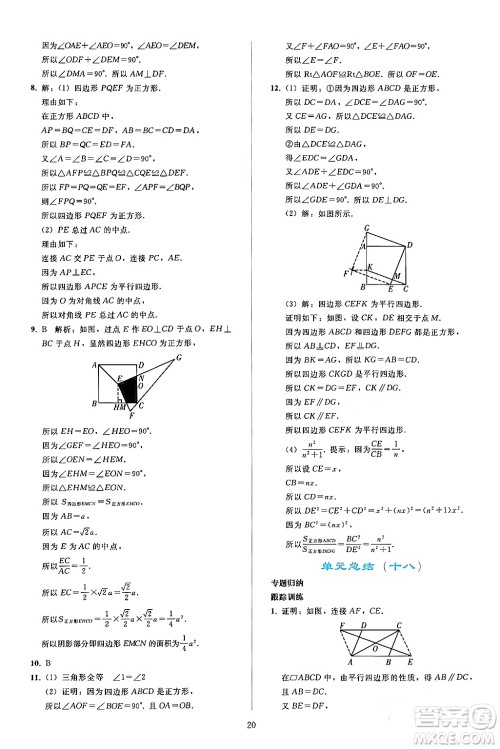 因为∠OAE+∠AEO=90°,
所以∠ODF+∠DEM=90°.
所以∠DMA=90°. 所以AM⊥DF.
8. 解:(1)四边形PQEF为正方形.
理由如下:
在正方形ABCD中,
AP=BQ=CE=DF, AB=BC=CD=AD,
所以BP=QC=ED=FA.
又∠A=∠B=∠C=∠D=90°,
所以△AFP≌△BPQ≌△CQE≌△DEF.
所以FP=PQ=QE=EF, ∠APF=∠PQB.
因为∠BPQ+∠PQB=90°, 所以∠APF+∠BPQ=90°,
则∠FPQ=90°.
所以四边形PQEF为正方形.
(2)PE总过AC的中点.
理由如下:
连接AC交PE于点O,连接AE,CP.
因为AP⊥CE,
所以四边形APCE为平行四边形.
因为O为对角线AC的中点,
所以对角线PE总过AC的中点.
9. B 解析:如图,过点E作EO⊥CD于点O, EH⊥
BC于点H,显然四边形EHCO为正方形.
A D G
E O
B H M C F
所以EH=EO, ∠HEO=90°.
因为∠GEF=90°,
所以∠OEN=∠HEM.
因为∠EHM=∠EON=90°,
所以△EHM≌△EON.
所以S四边形EMCN=S正方形EHCO.
因为AB=a,
所以AC=√2a.
因为E为AC的中点,
所以EC/AC=1/2.
所以S正方形EHCO=1/4S正方形ABCD=1/4a².
所以阴影部分即四边形EMCN的面积为1/4a².
10. B
11. (1)三角形全等 ∠1=∠2
(2)证明:因为四边形ABCD是正方形,
所以∠AOF=∠BOE=90°且OA=OB.
又∠F+∠FAO=90°, ∠E+∠FAO=90°,
所以∠E=∠F.
所以Rt△AOF≌Rt△BOE.
所以OF=OE.
12. (1)证明:①因为四边形ABCD是正方形,
所以DC=DA, ∠DCE=∠DAG=90°.
又CE=AG, 所以△DCE≌△DAG.
所以∠EDC=∠GDA, DE=DG.
②因为∠ADE+∠EDC=90°,
所以∠ADE+∠GDA=90°.
所以∠GDE=90°. 所以DE⊥DG.
(2)解:如图所示.
G
A D
F K
B E C
(3)解:四边形CEFK为平行四边形.
证明:设CK,DE相交于点M.
因为四边形ABCD和四边形DEFG都是正方形,
所以AB∥CD, AB=CD, EF=DG, EF∥DG.
因为BK=AG, 所以KG=AB=CD.
所以四边形CKGD是平行四边形.
所以CK=DG=EF, CK∥DG.
因为EF∥DG,
所以CK∥EF.
所以四边形CEFK为平行四边形.
(4)n²/(n²+1). 提示:因为CE/CB=1/n,
所以设CE=x,
CB=nx.
所以CD=nx.
所以DE²=CE²+CD²=x²+(nx)²=(n²+1)x².
因为BC²=n²x²,
所以S正方形ABCD/S正方形DEFG=BC²/DE²=n²/(n²+1).
单元总结(十八)
专题归纳
跟踪训练
1. 证明:如图,连接AF,CE.
D F C
A E B
在□ABCD中,由平行四边形的性质可知,
AB∥DC且AB=DC.
20